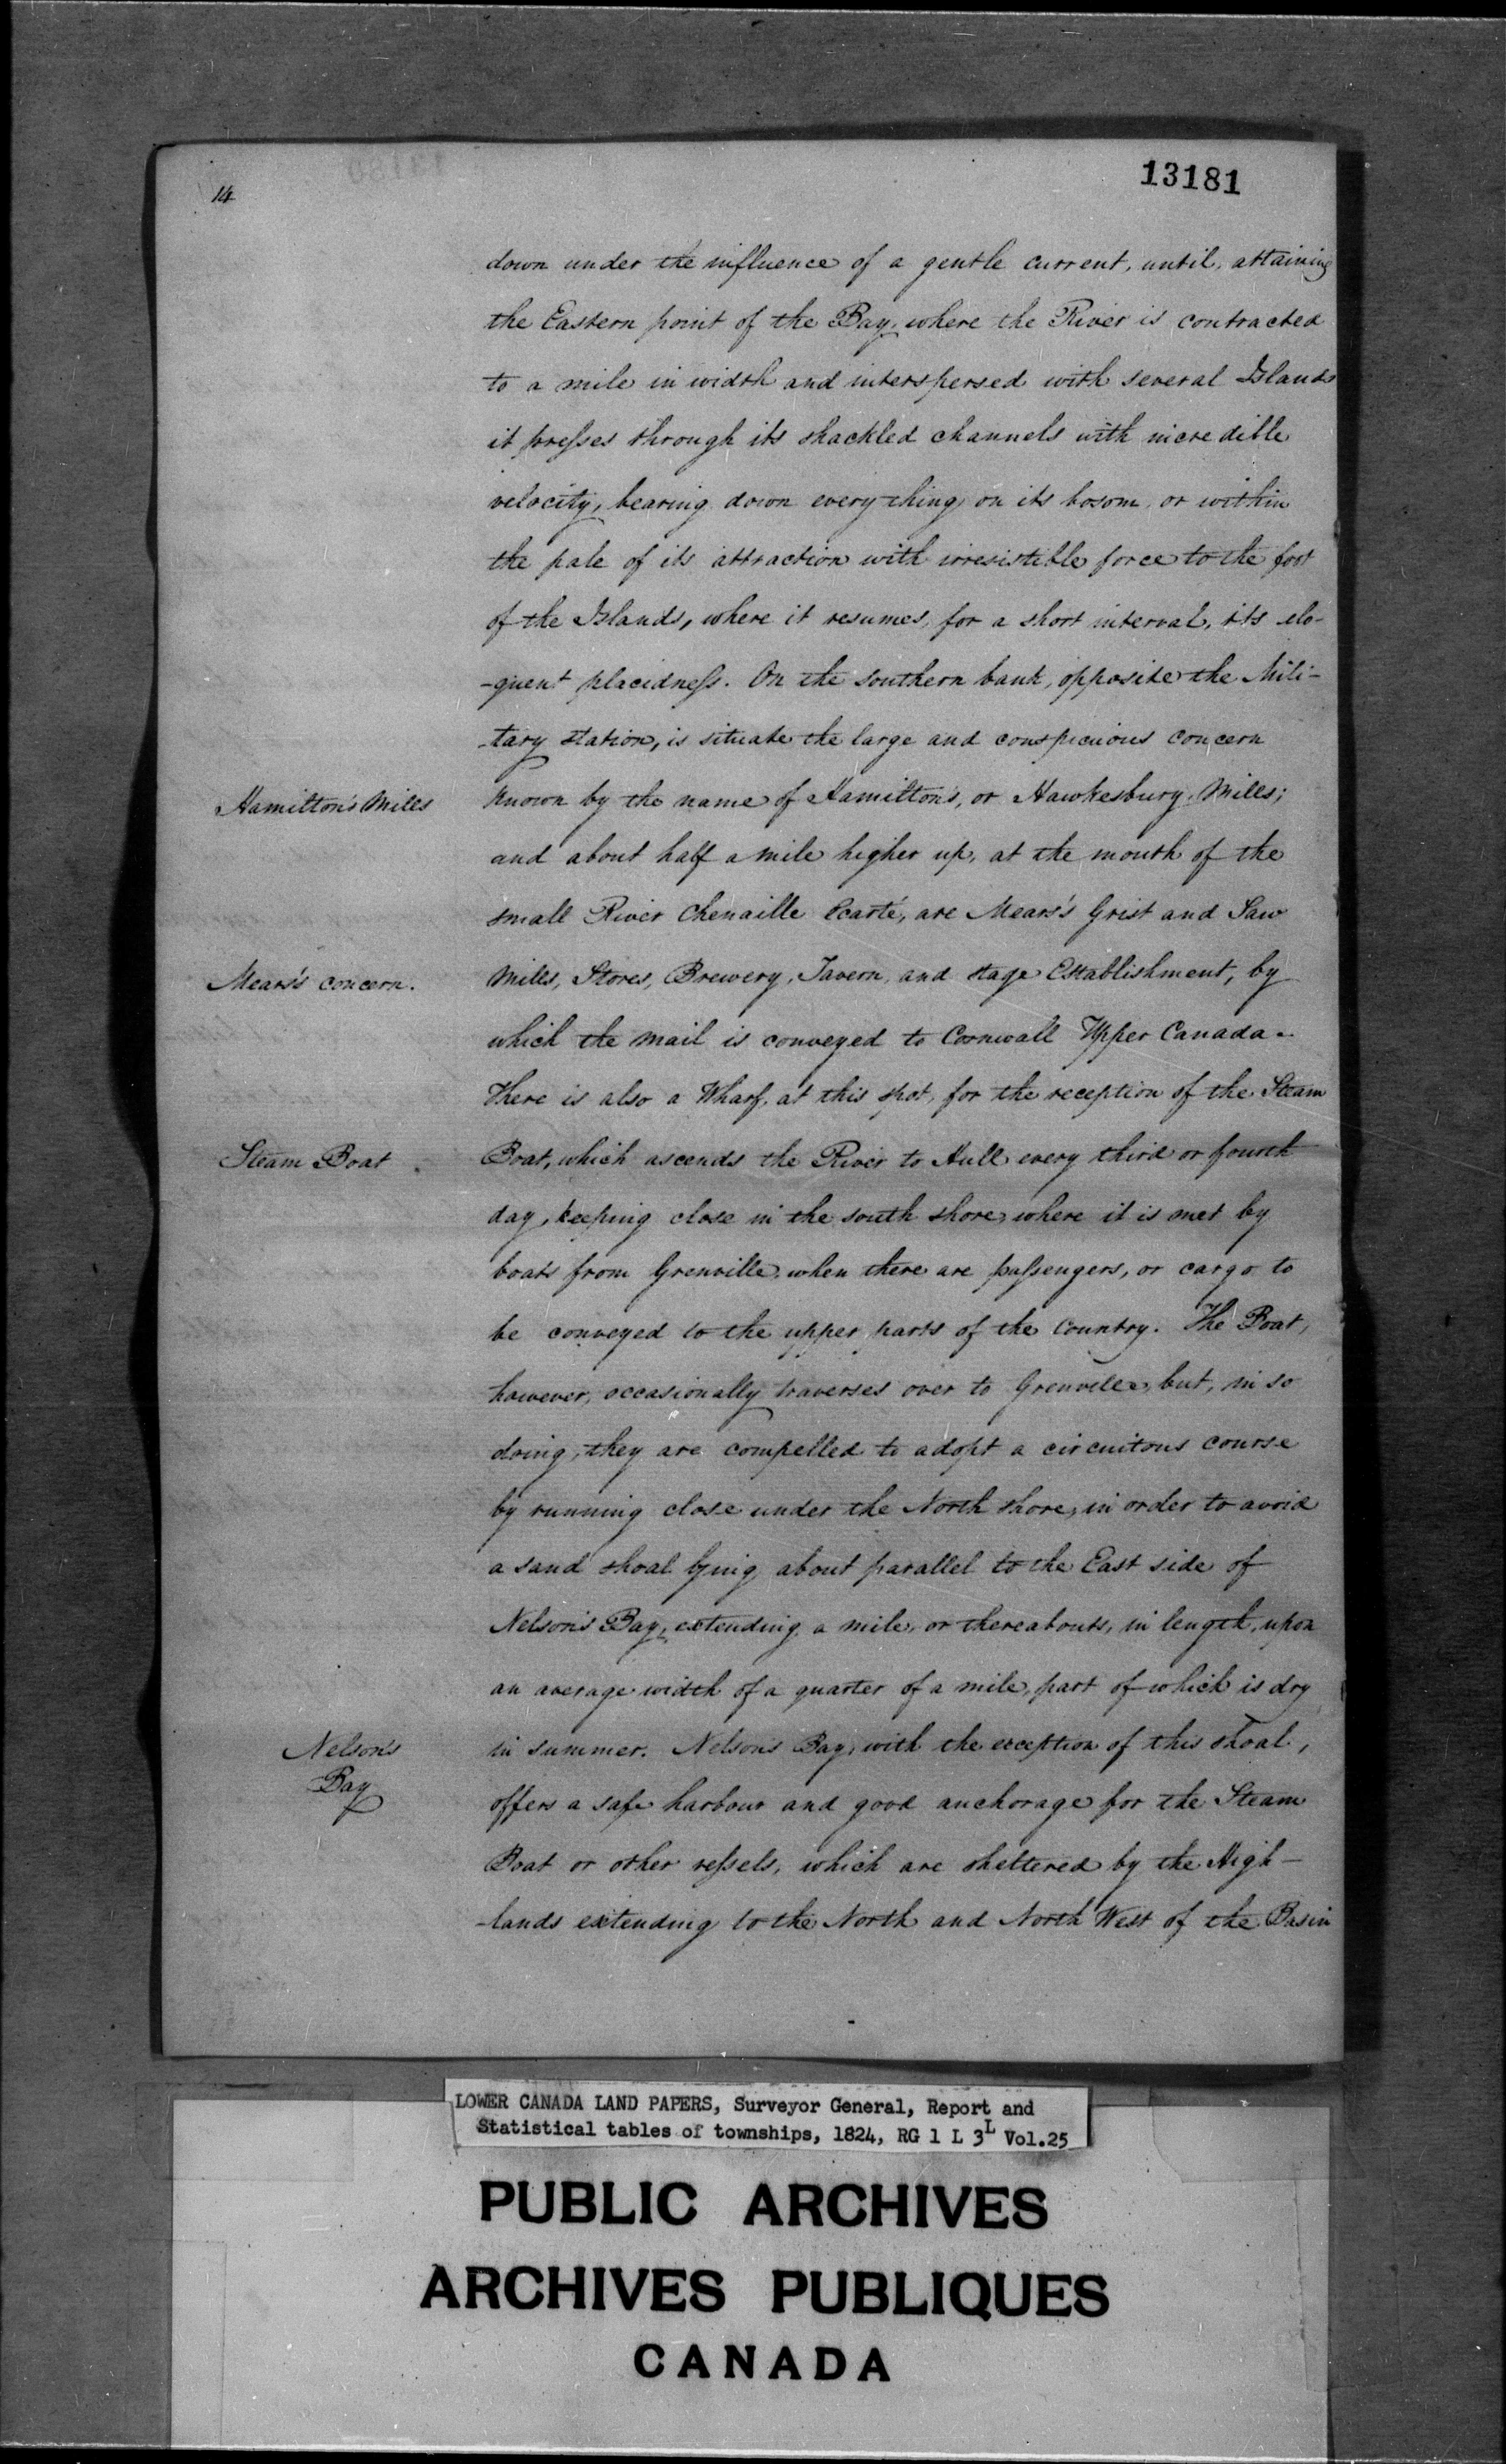 14
13181
down under the influence of a gentle current, until, attaining
the Eastern point of the Bay, where the River is contracted
to a mile in width and interspersed with several Islands
it presses through its shackled channels with incredible
velocity, bearing down every thing on its bosom, or within
the pale of its attraction with irresistible force to the foot
of the Islands, where it resumes, for a short interval, its elo-
-quent placidness. On the southern bank, opposite the Mili-
-tary station, is situate the large and conspicuous concern
Hamilton's Mills known by the name of Hamilton's, or Hawkesbury, Mills;
and about half a mile higher up, at the mouth of the
small River Chenaille Ecarté, are Mears's Grist and Saw
Mears's concern. Mills, Stores, Brewery, Tavern, and stage Establishment, by
which the mail is conveyed to Cornwall Upper Canada.
There is also a Wharf, at this spot, for the reception of the Steam
Steam Boat. Boat, which ascends the River to Hull every third or fourth
day, keeping close in the south shore, where it is met by
boats from Grenville, when there are passengers, or cargo to
be conveyed to the upper parts of the Country. The Boat,
however, occasionally traverses over to Grenville, but, in so
doing, they are compelled to adopt a circuitous course
by running close under the North shore, in order to avoid
a sand shoal lying about parallel to the East side of
Nelson's Bay, extending a mile, or thereabouts, in length, upon
an average width of a quarter of a mile, part of which is dry
Nelson's in summer. Nelson's Bay, with the exception of this shoal,
Bay offers a safe harbour and good anchorage for the Steam
Boat or other vessels, which are sheltered by the High-
-lands extending to the North and North West of the Basin
LOWER CANADA LAND PAPERS, Surveyor General, Report and
Statistical tables of townships, 1824, RG 1 L 3L Vol.25
PUBLIC ARCHIVES
ARCHIVES PUBLIQUES
CANADA